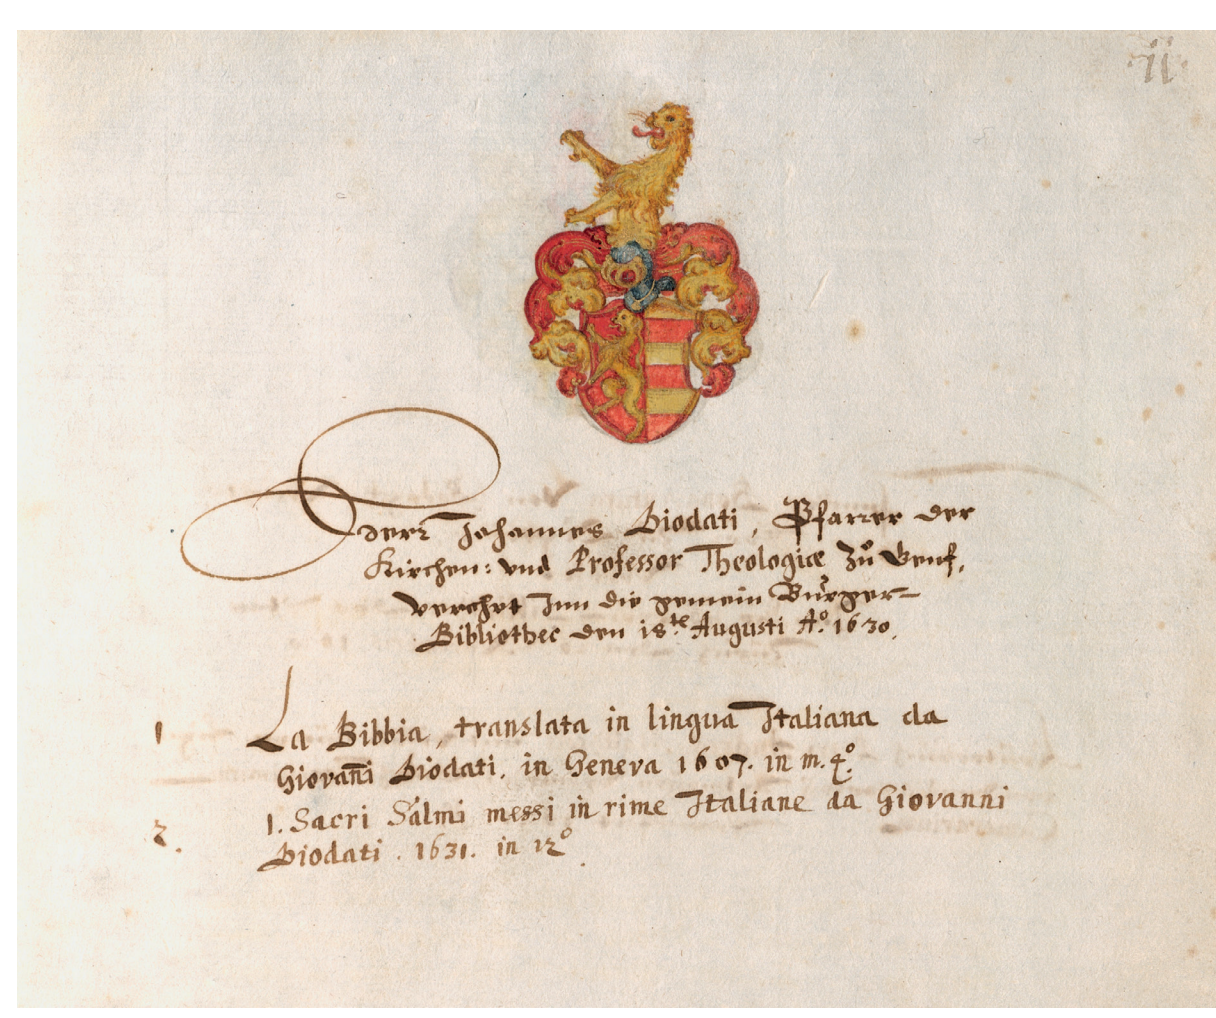 11
Herr Johannes Diodati, Pfarrer der
Kirchen: vnd Professor Theologiæ zů Genf,
verehrt Inn die gemein Burger-
Bibliothec den 18.te Augusti Aº. 1630.
1 La Bibbia, translata in lingua Italiana da
Giovañi Diodati, in Geneva 1607. in m. 4º.
2. I. Sacri Salmi messi in rime Italiane da Giovanni
Diodati. 1631. in 12º.